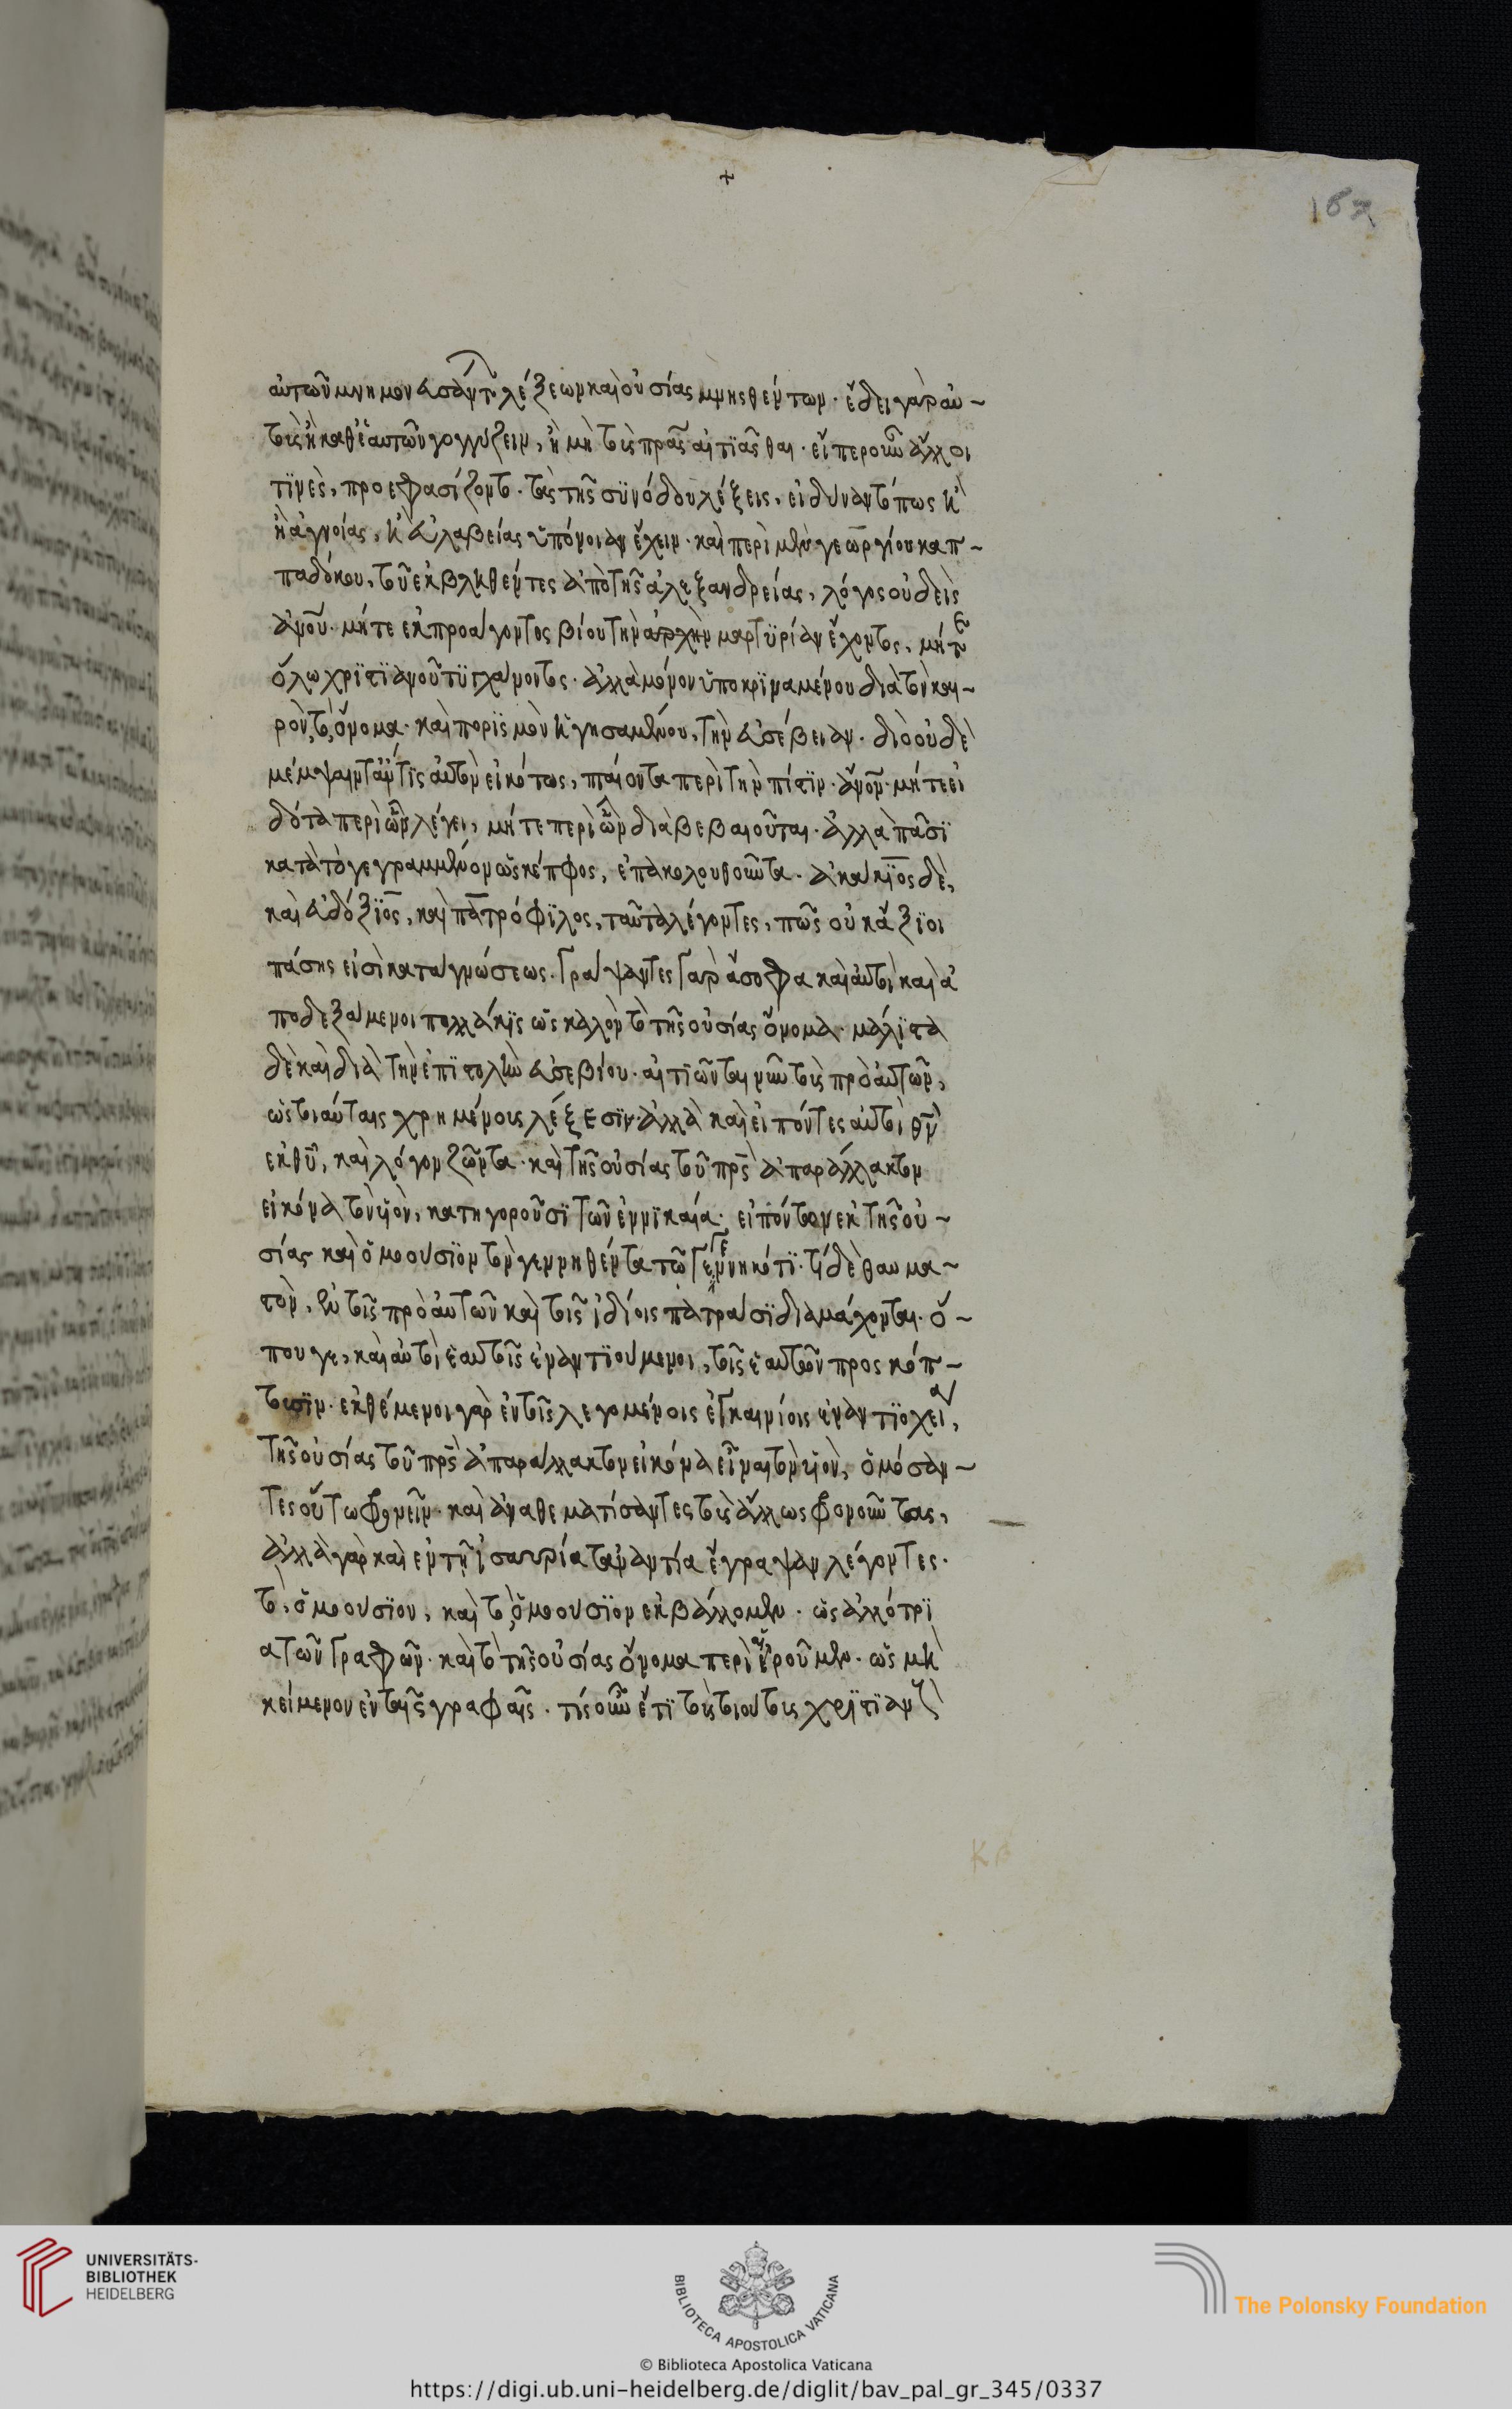 +
167
αὐτῶν μνημονευσάντων λέξεων καὶ οὐσίας μνησθέντων · ἔδει γὰρ αὐ~
τοὺς ἢ καθ' ἑαυτῶν γογγύζειν, ἢ μὴ τοὺς πρας αἰτιᾶσθαι · εἴπερ οὖν ἄλλοι
τινὲς, προεφασίζοντο · τὰς τῆς συνόδου λέξεις, εἰ δύναντό πως κ'
ἢ ἀγνοίας, κ' εὐλαβείας ὑπόνοιαν ἔχειν · καὶ περὶ μὲν γεωργίου καπ~
παδόκου, τοῦ ἐκβληθέντες ἀπὸ τῆς ἀλεξανδρείας, λόγος οὐδεὶς
ἀνοῦ · μήτε ἐκ προάγοντος βίου τὴν ἀρχὴν μαρτυρίαν ἔχοντος, μήτε
ὅλω χριστιανοῦ τυγχάνοντος · ἀλλὰ μόνον ὑποκριναμένου διὰ τὸν και~
ρὸν, τὸ ὄνομα · καὶ πορισμὸν ἡγησαμένου, τὴν εὐσέβειαν · διὸ οὐδὲ
μέμψαιντ' ἄν τις αὐτὸν εἰκότως, πταίοντα περὶ τὴν πίστιν · ἄνον · μήτε εἰ
δότα περὶ ὧν λέγει, μήτε περὶ ὧν διαβεβαιοῦται · ἀλλὰ πᾶσι
κατὰ τὸ γεγραμμένον ὡς κέπφος, ἐπακολουθοῦντα · ἀκάκιος δὲ,
καὶ εὐδόξιος, καὶ πατρόφιλος, ταῦτα λέγοντες, πῶς οὐκ ἄξιοι
πάσης εἰσὶ καταγνώσεως · Γράψαντες Γὰρ ἄσοφα καὶ αὐτοὶ καὶ ἀ
ποδεξάμενοι πολλάκις ὡς καλὸν τὸ τῆς οὐσίας ὄνομα · μάλιστα
δὲ καὶ διὰ τὴν ἐπιστολὴν εὐσεβίου · αἰτιῶνται νῦν τοὺς πρὸ αὐτῶν,
ὡς τοιαύταις χρημένους λέξεσιν · ἀλλὰ καὶ εἰπόντες αὐτοὶ θν
ἐκ θυ, καὶ λόγον ζῶντα · καὶ τῆς οὐσίας τοῦ πρς ἀπαράλλακτον
εἰκόνα τὸν υἱὸν, κατηγοροῦσι τῶν ἐν νικαία · εἰπόντων ἐκ τῆς οὐ~
σίας καὶ ὁμοούσιον τὸν γεννηθέντα τῶ Γεγεννηκότι · τί δὲ θαυμα~
στὸν, εἰ τοῖς πρὸ αὐτῶν καὶ τοῖς ἰδίοις πατράσι διαμάχονται · ὅ~
που γε, καὶ αὐτοὶ ἑαυτοῖς ἐναντιούμενοι, τοῖς ἑαυτῶν προσκόπ~
τουσιν · ἐκθέμενοι γὰρ ἐν τοῖς λεγομένοις ἐγκαινίοις ἐν ἀντιοχεία,
τῆς οὐσίας τοῦ πρς ἀπαράλλακτον εἰκόνα εἶναι τὸν υἱὸν, ὁμόσαν~
τες οὕτω φρονεῖν · καὶ ἀναθεματίσαντες τοὺς ἄλλως φρονοῦντας,
ἀλλὰ γὰρ καὶ ἐν τῇ ἰσαυρία τἀναντία ἔγραψαν λέγοντες ·
τὸ, ὁμοούσιον, καὶ τὸ, ὁμοιούσιον ἐκβάλλομεν · ὡς ἀλλότρι
α τῶν Γραφῶν · καὶ τὸ τῆς οὐσίας ὄνομα περιαιροῦμεν · ὡς μὴ
κείμενον ἐν ταῖς γραφαῖς · τίς οὖν ἔτι τοὺς τοιούτους χριστιανοὺς
UNIVERSITÄTS-
BIBLIOTHEK
HEIDELBERG
BIBLIOTECA APOSTOLICA VATICANA
The Polonsky Foundation
© Biblioteca Apostolica Vaticana
https://digi.ub.uni-heidelberg.de/diglit/bav_pal_gr_345/0337